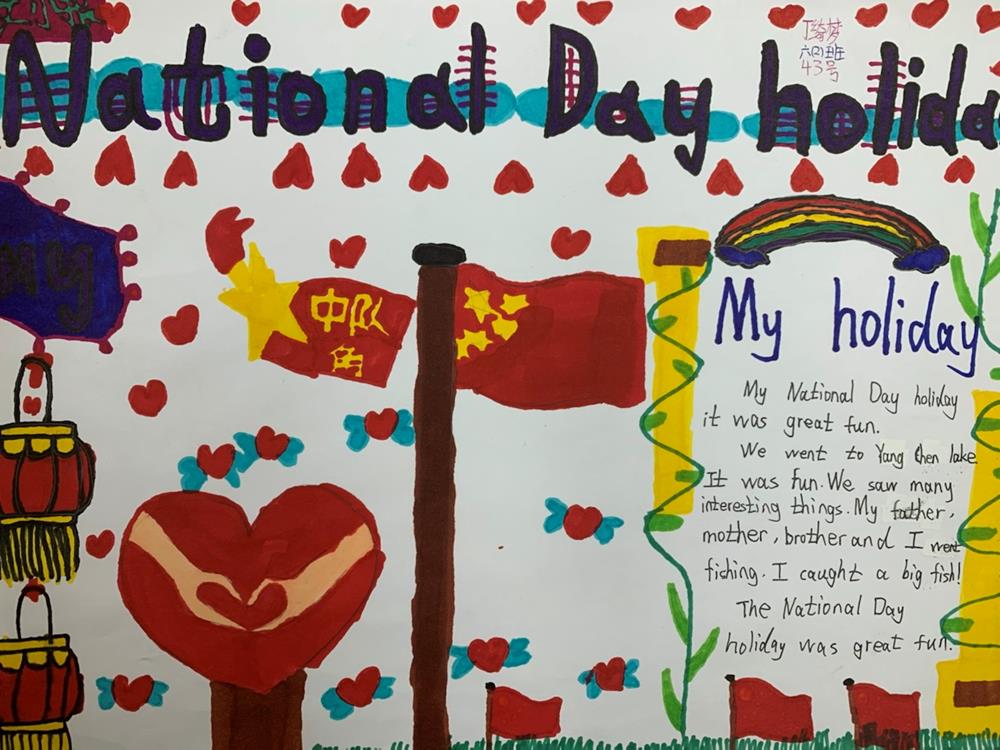 National Day holida
43号
my
中队
My holiday
My National Day holiday
it was great fun.
We went to Yang Chen lake
It was fun. We saw many
interesting things. My father,
mother, brother and I went
fishing. I caught a big fish!
The National Day
holiday was great fun.